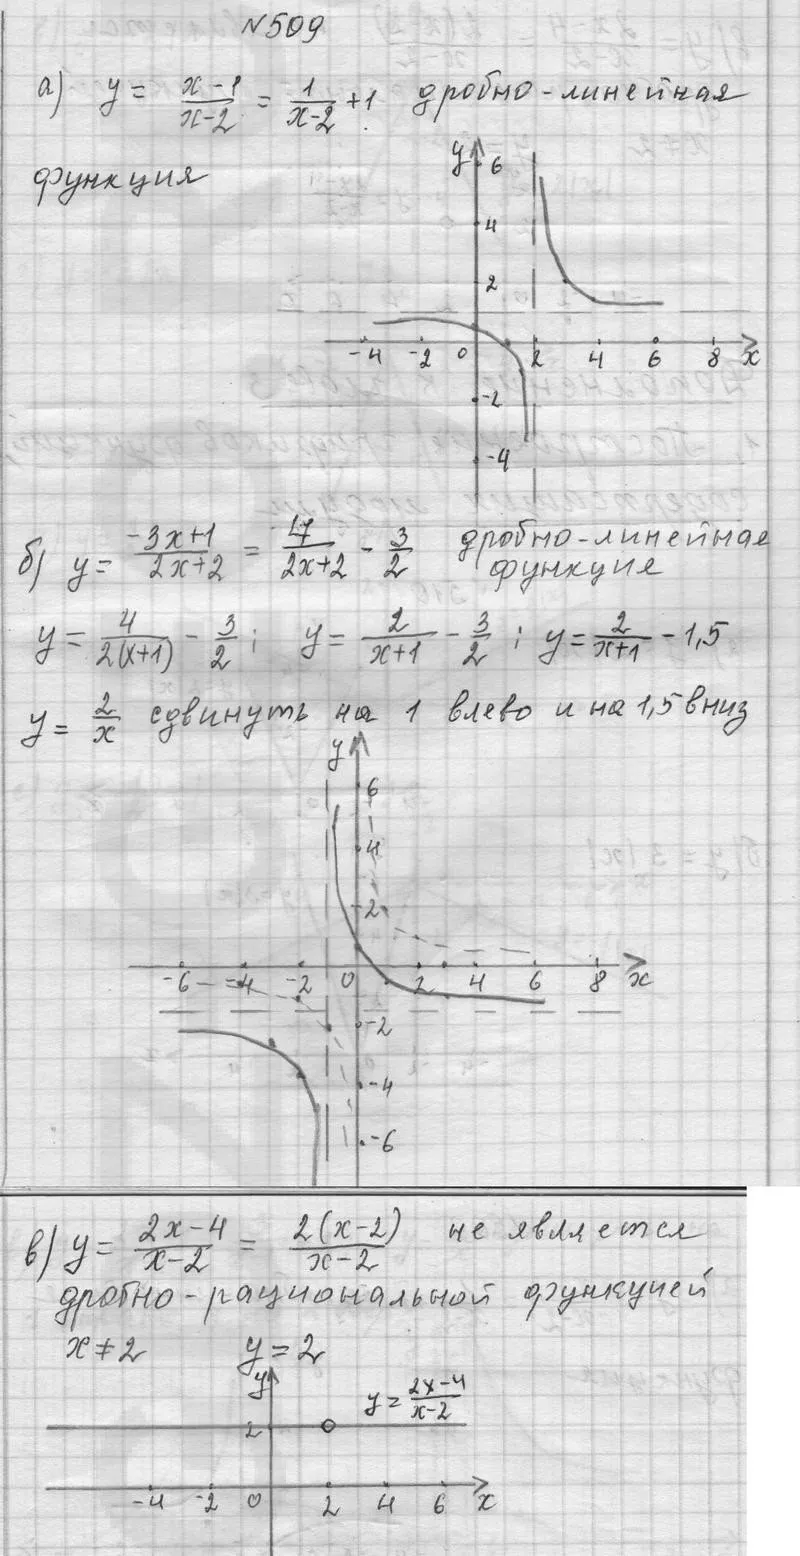 №509
а) y = (x-1)/(x-2) = 1/(x-2) + 1 дробно-линейная
функция
y 6
4
2
-4 -2 0 2 4 6 8 x
-2
-4
б) y = (-3x+1)/(2x+2) = 4/(2x+2) - 3/2 дробно-линейная
функция
y = 4/(2(x+1)) - 3/2 ; y = 2/(x+1) - 3/2 ; y = 2/(x+1) - 1,5
y = 2/x сдвинуть на 1 влево и на 1,5 вниз
y
6
4
2
-6 -4 -2 0 2 4 6 8 x
-2
-4
-6
в) y = (2x-4)/(x-2) = 2(x-2)/(x-2) не является
дробно-рациональной функцией
x ≠ 2 y = 2
y y = (2x-4)/(x-2)
2
-4 -2 0 2 4 6 x